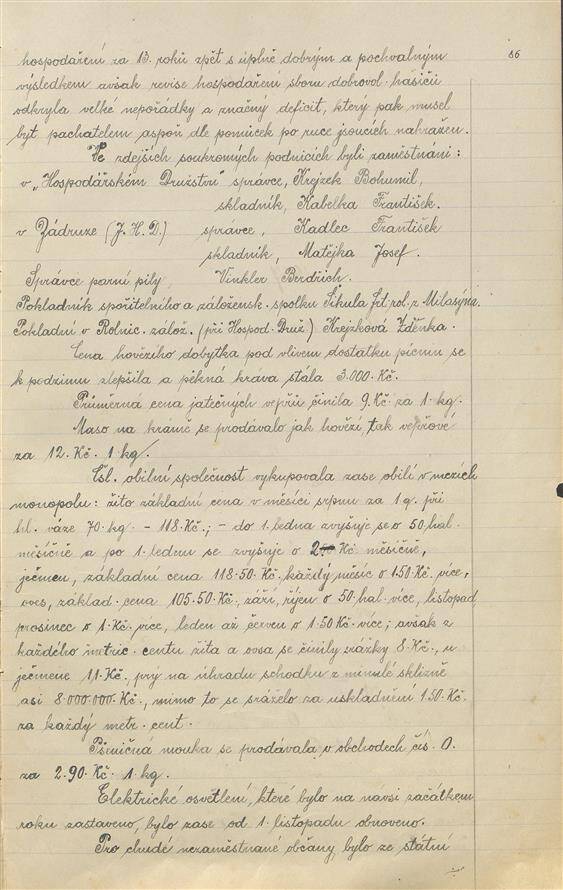 86
hospodaření za 13. roků zpět s úplně dobrým a pochvalným
výsledkem avšak revise hospodaření sboru dobrovol. hasičů
odkryla velké nepořádky a značný deficit, který pak musel
byt pachatelem aspoň dle pomůcek po ruce jsoucích nahražen.
Ve zdejších soukromých podnicích byli zaměstnáni:
v „Hospodářském Družstvu" správce, Krejzek Bohumil,
skladník, Kabelka František.
v Zádruze (J.H.D.) správce, Kadlec František
skladník, Matějka Josef.
Správce parní pily Vinkler Berdrich.
Pokladník spořitelního a záložensk. spolku Šikula Jet. rol. z Milasýna.
Pokladní v Rolnic. zálož. (při Hospod. Druž.) Krejzková Zděnka.
Cena hovězího dobytka pod vlivem dostatku pícnin se
k podzimu zlepšila a pěkná kráva stála 3.000.Kč.
Průměrná cena jatečných vepřů činila 9.Kč za 1.kg.
Maso na krámě se prodávalo jak hovězí tak vepřové
za 12.Kč. 1 kg.
Čsl. obilní společnost vykupovala zase obilí v mezích
monopolu: žito základní cena v měsíci srpnu za 1 q. při
hl. váze 70.kg. - 118Kč.; - do 1. ledna zvyšuje se o 50. hal.
měsíčně a po 1. lednu se zvyšuje o 2 Kč měsíčně,
ječmen, základní cena 118.50.Kč, každý měsíc o 1.50 Kč. více,
oves, základ. cena 105.50.Kč., září, říjen o 50. hal. více, listopad
prosinec o 1.Kč. více, leden až červen o 1.50 Kč. více; avšak z
každého metric. centu žita a ovsa se činily srážky 8.Kč., u
ječmene 11.Kč., prý na úhradu schodku z minulé sklizně
asi 8.000.000.Kč., mimo to se sráželo za uskladnění 1.50.Kč.
za každý metr. cent.
Pšeničná mouka se prodávala v obchodech čís. 0.
za 2.90.Kč. 1.kg.
Elektrické osvětlení, které bylo na navsi začátkem
roku zastaveno, bylo zase od 1. listopadu obnoveno.
Pro chudé nezaměstnané občany, bylo ze státní